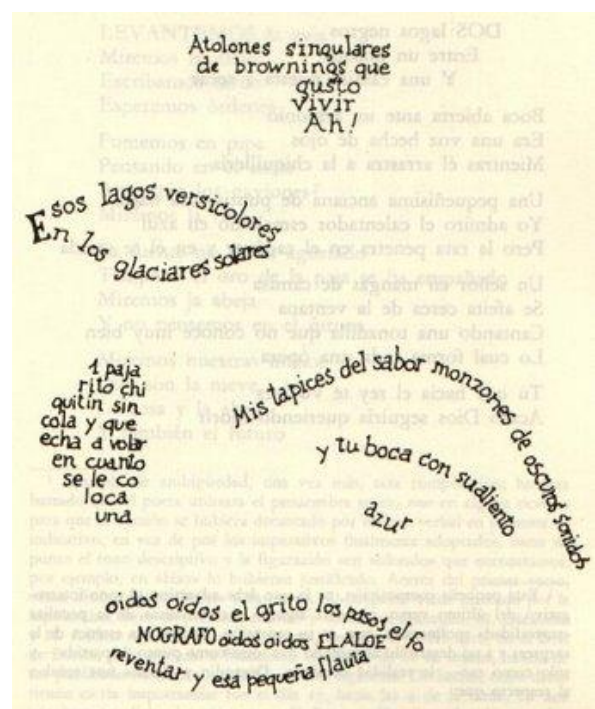 Atolones singulares
de brownings que
gusto
vivir
Ah!
Esos lagos versicolores
En los glaciares solares
1 paja
rito chi
quitin sin
cola y que
echa a volar
en cuanto
se le co
loca
una
Mis tapices del sabor monzones de oscuros sonidos
y tu boca con sualiento
azur
oidos oidos el grito los pasos el fo
NOGRAFO oidos oidos EL ALOE
reventar y esa pequeña flauta